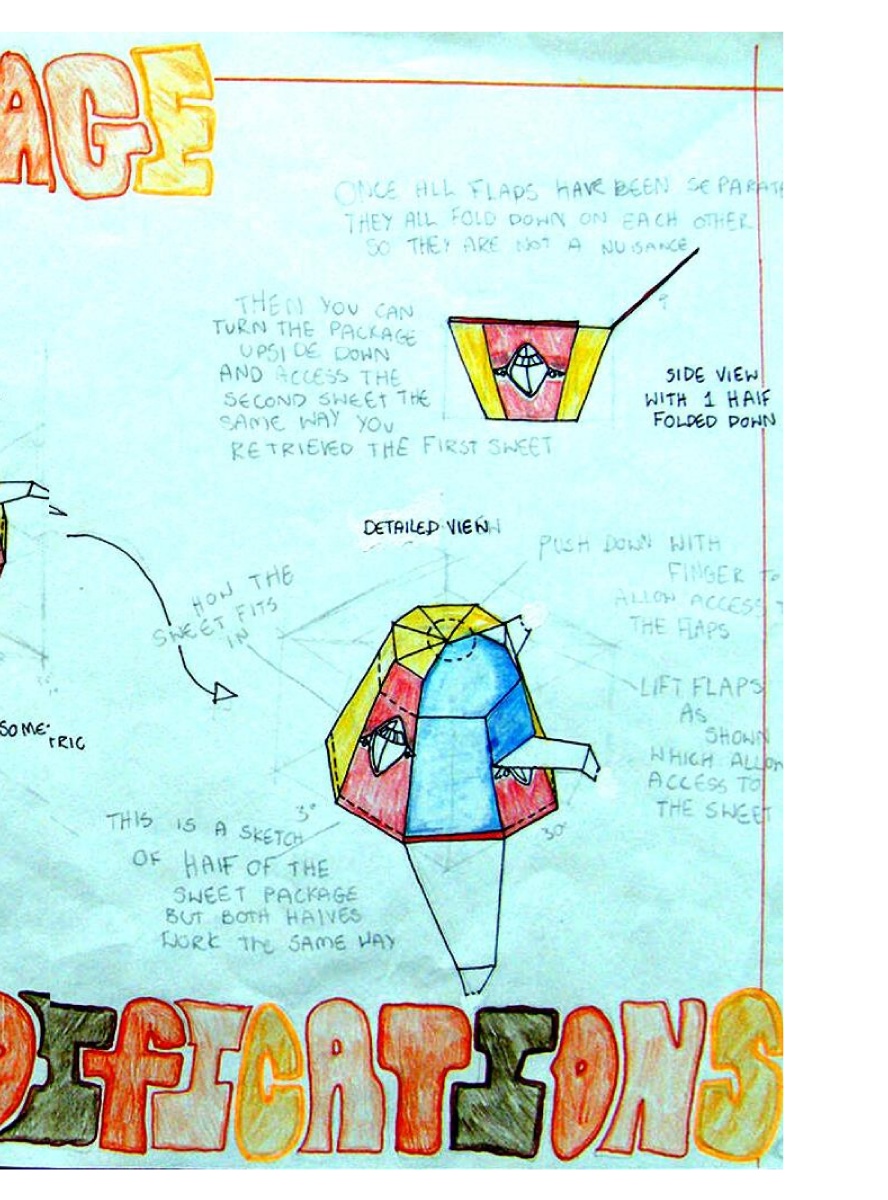 AGE
ONCE ALL FLAPS HAVE BEEN SEPARATE
THEY ALL FOLD DOWN ON EACH OTHER
SO THEY ARE NOT A NUISANCE
THEN YOU CAN
TURN THE PACKAGE
UPSIDE DOWN
AND ACCESS THE
SECOND SWEET THE
SAME WAY YOU
RETRIEVED THE FIRST SWEET
SIDE VIEW
WITH 1 HALF
FOLDED DOWN
DETAILED VIEW
PUSH DOWN WITH
FINGER TO
ALLOW ACCESS T
THE FLAPS
HOW THE
SWEET FITS
IN
LIFT FLAPS
AS
SHOWN
WHICH ALLOW
ACCESS TO
THE SWEET
SOME-
TRIC
3°
30°
THIS IS A SKETCH
OF HALF OF THE
SWEET PACKAGE
BUT BOTH HALVES
WORK THE SAME WAY
DIFICATIONS